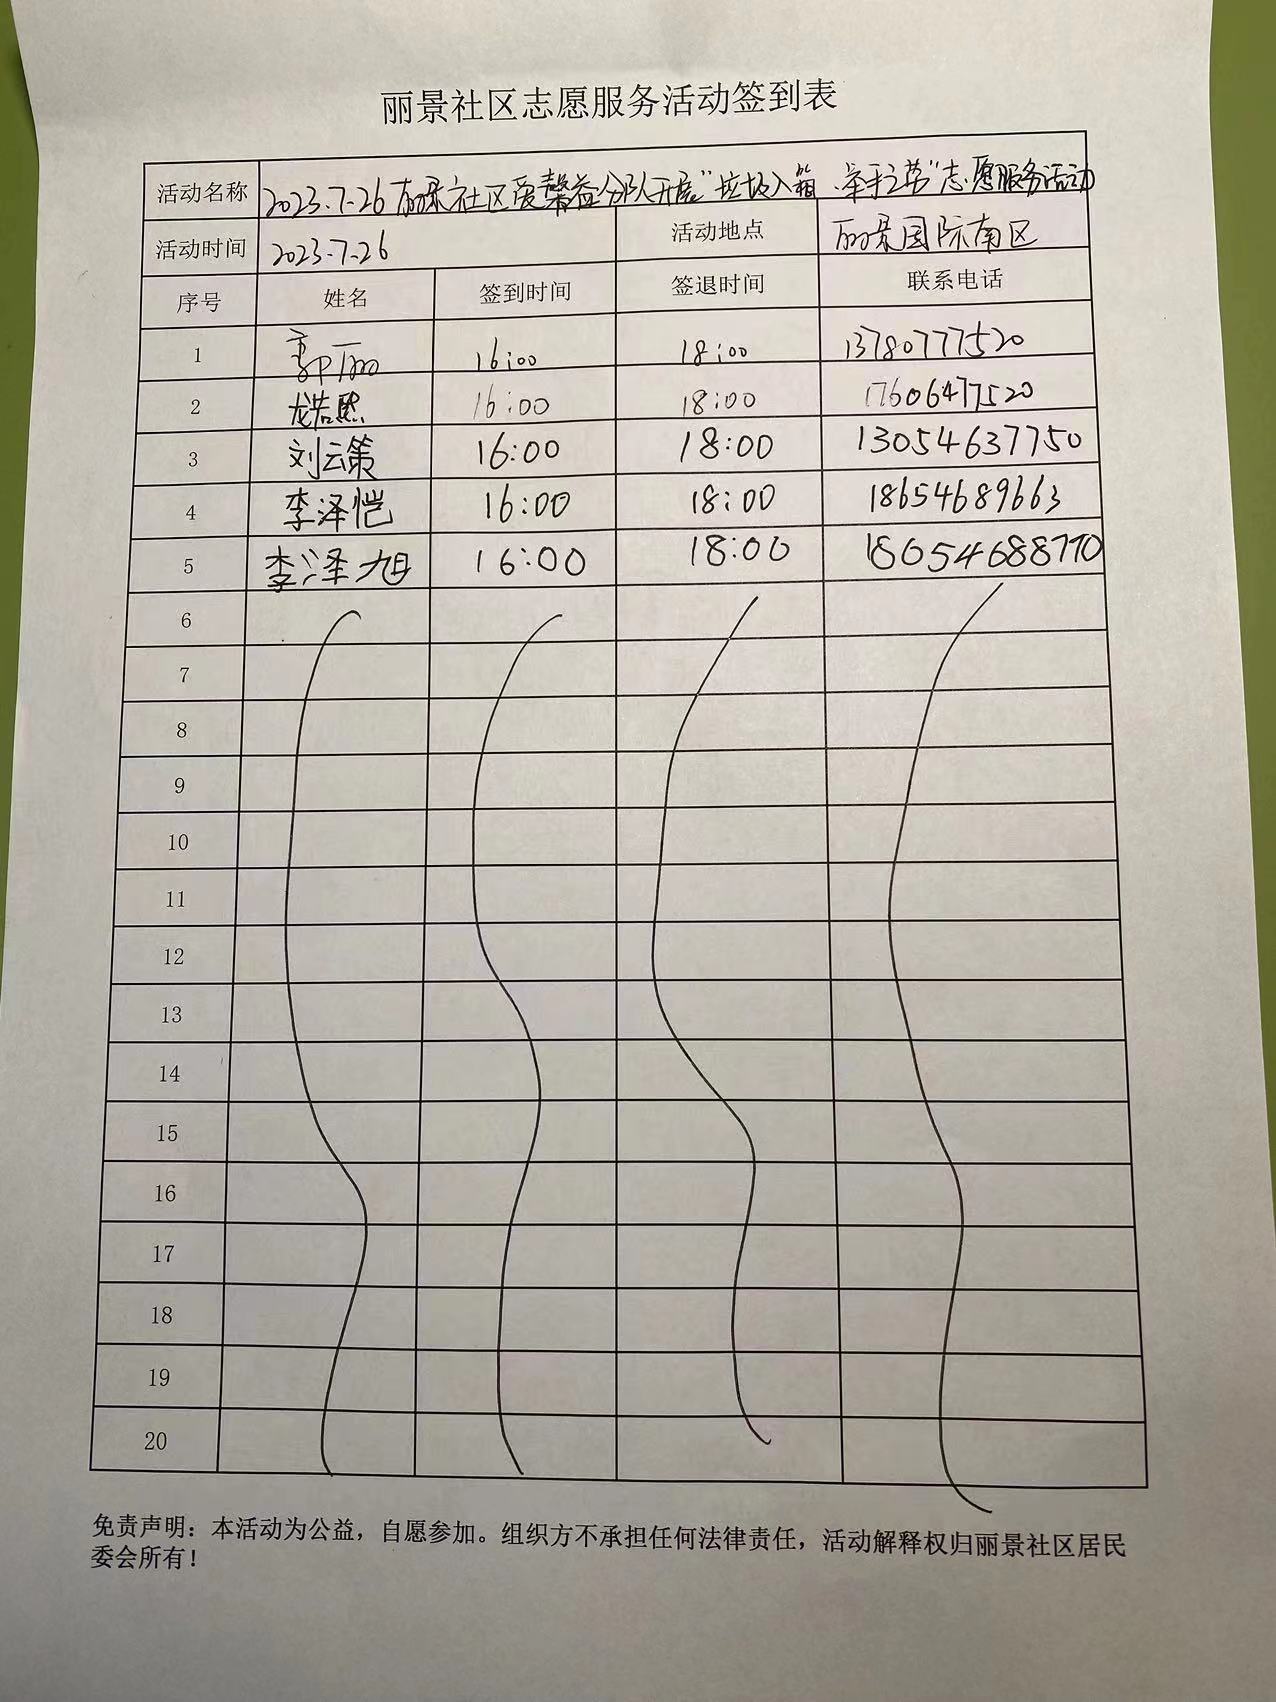 丽景社区志愿服务活动签到表
活动名称 2023.7.26丽景社区爱馨益分队开展"垃圾入箱、举手之劳"志愿服务活动
活动时间 2023.7.26 活动地点 丽景国际南区
序号 姓名 签到时间 签退时间 联系电话
1 郭丽 16:00 18:00 13780777520
2 龙浩熙 16:00 18:00 17606477520
3 刘云策 16:00 18:00 13054637750
4 李泽恺 16:00 18:00 18654689663
5 李泽旭 16:00 18:00 18054688770
6
7
8
9
10
11
12
13
14
15
16
17
18
19
20
免责声明：本活动为公益，自愿参加。组织方不承担任何法律责任，活动解释权归丽景社区居民
委会所有！